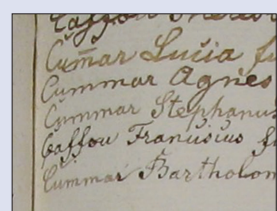 Caffou
Cum̄ar Lucia
Cummar Agnes
Cummar Stephanus
Caffou Franciscus
Cummar Bartholom